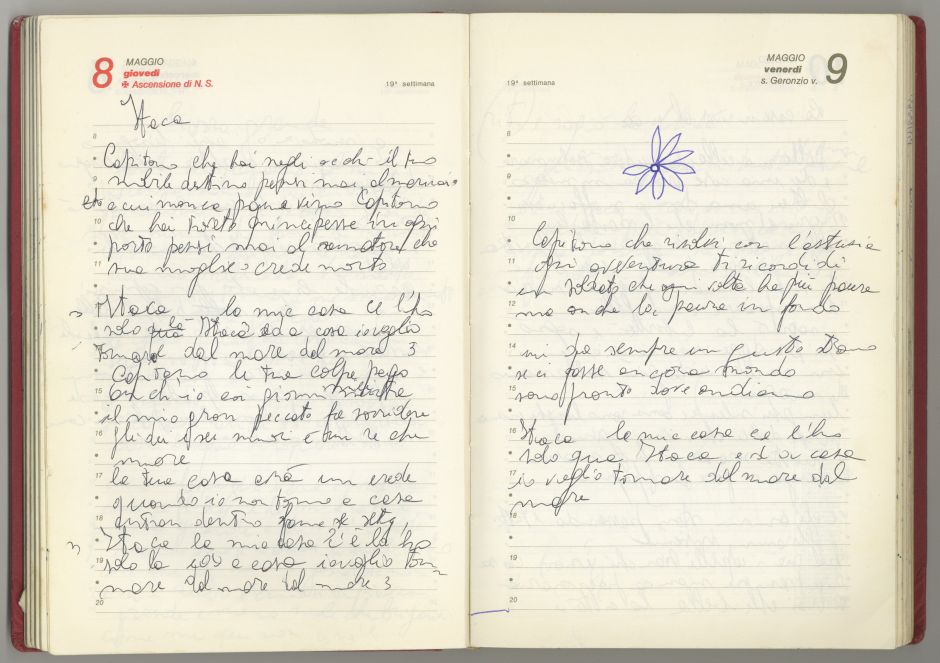 8 MAGGIO
giovedì
✠ Ascensione di N. S.
19ª settimana
Itaca
8
Capitano che hai negli occhi il tuo
9
nobile destino pensi mai al marinaio
a cui manca pane vino Capitano
10
che hai trovato principesse in ogni
porto pensi mai al rematore che
11
sua moglie crede morto
Itaca la mia casa ce l'ho
solo là Itaca ed a casa io voglio
tornare dal mare dal mare 3
Capitano le tue colpe pago
15
anch'io coi giorni
il mio gran peccato fa sorridere
16
gli dei e se muori è un re che
muore
17
la tua casa avrà un erede
quando io non torno a casa
18
entran dentro fame e sete
Itaca la mia casa ce l'ho
19
solo là a casa io voglio tor
nare dal mare dal mare 3
20
MAGGIO
venerdì 9
s. Geronzio v.
19ª settimana
8
9
10
Capitano che risolvi con l'astuzia
11
ogni avventura ti ricordi di
un soldato che ogni volta ha più paura
12
ma anche la paura in fondo
14
mi dà sempre un gusto strano
se ci fosse ancora mondo
15
sono pronto dove andiamo
16
Itaca la mia casa ce l'ho
solo qua Itaca ed a casa
17
io voglio tornare dal mare dal
mare
18
19
20